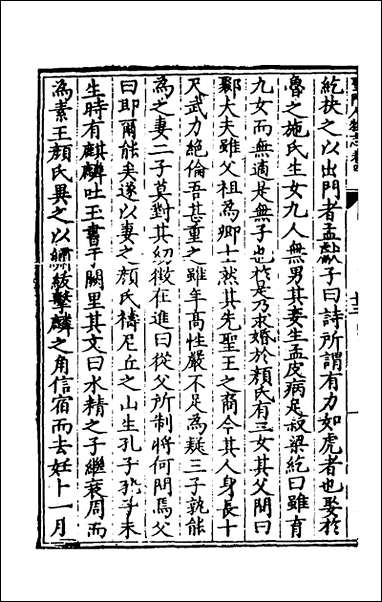 紇抉之以出門者孟獻子曰詩所謂有力如虎者也娶於
魯之施氏生女九人無男其妾生孟皮病足叔梁紇曰雖有
九女而無適是無子也於是乃求婚於顏氏有三女其父問曰
鄹大夫雖父祖為卿士然其先聖王之裔今其人身長十
尺武力絕倫吾甚重之雖年高性嚴不足為疑三子孰能
為之妻二子莫對其幼徵在進曰從父所制將何問焉父
曰即爾能矣遂以妻之顏氏禱尼丘之山生孔子孔子未
生時有麒麟吐玉書于闕里其文曰水精之子繼衰周而
為素王顏氏異之以繡紱繫麟之角信宿而去妊十一月